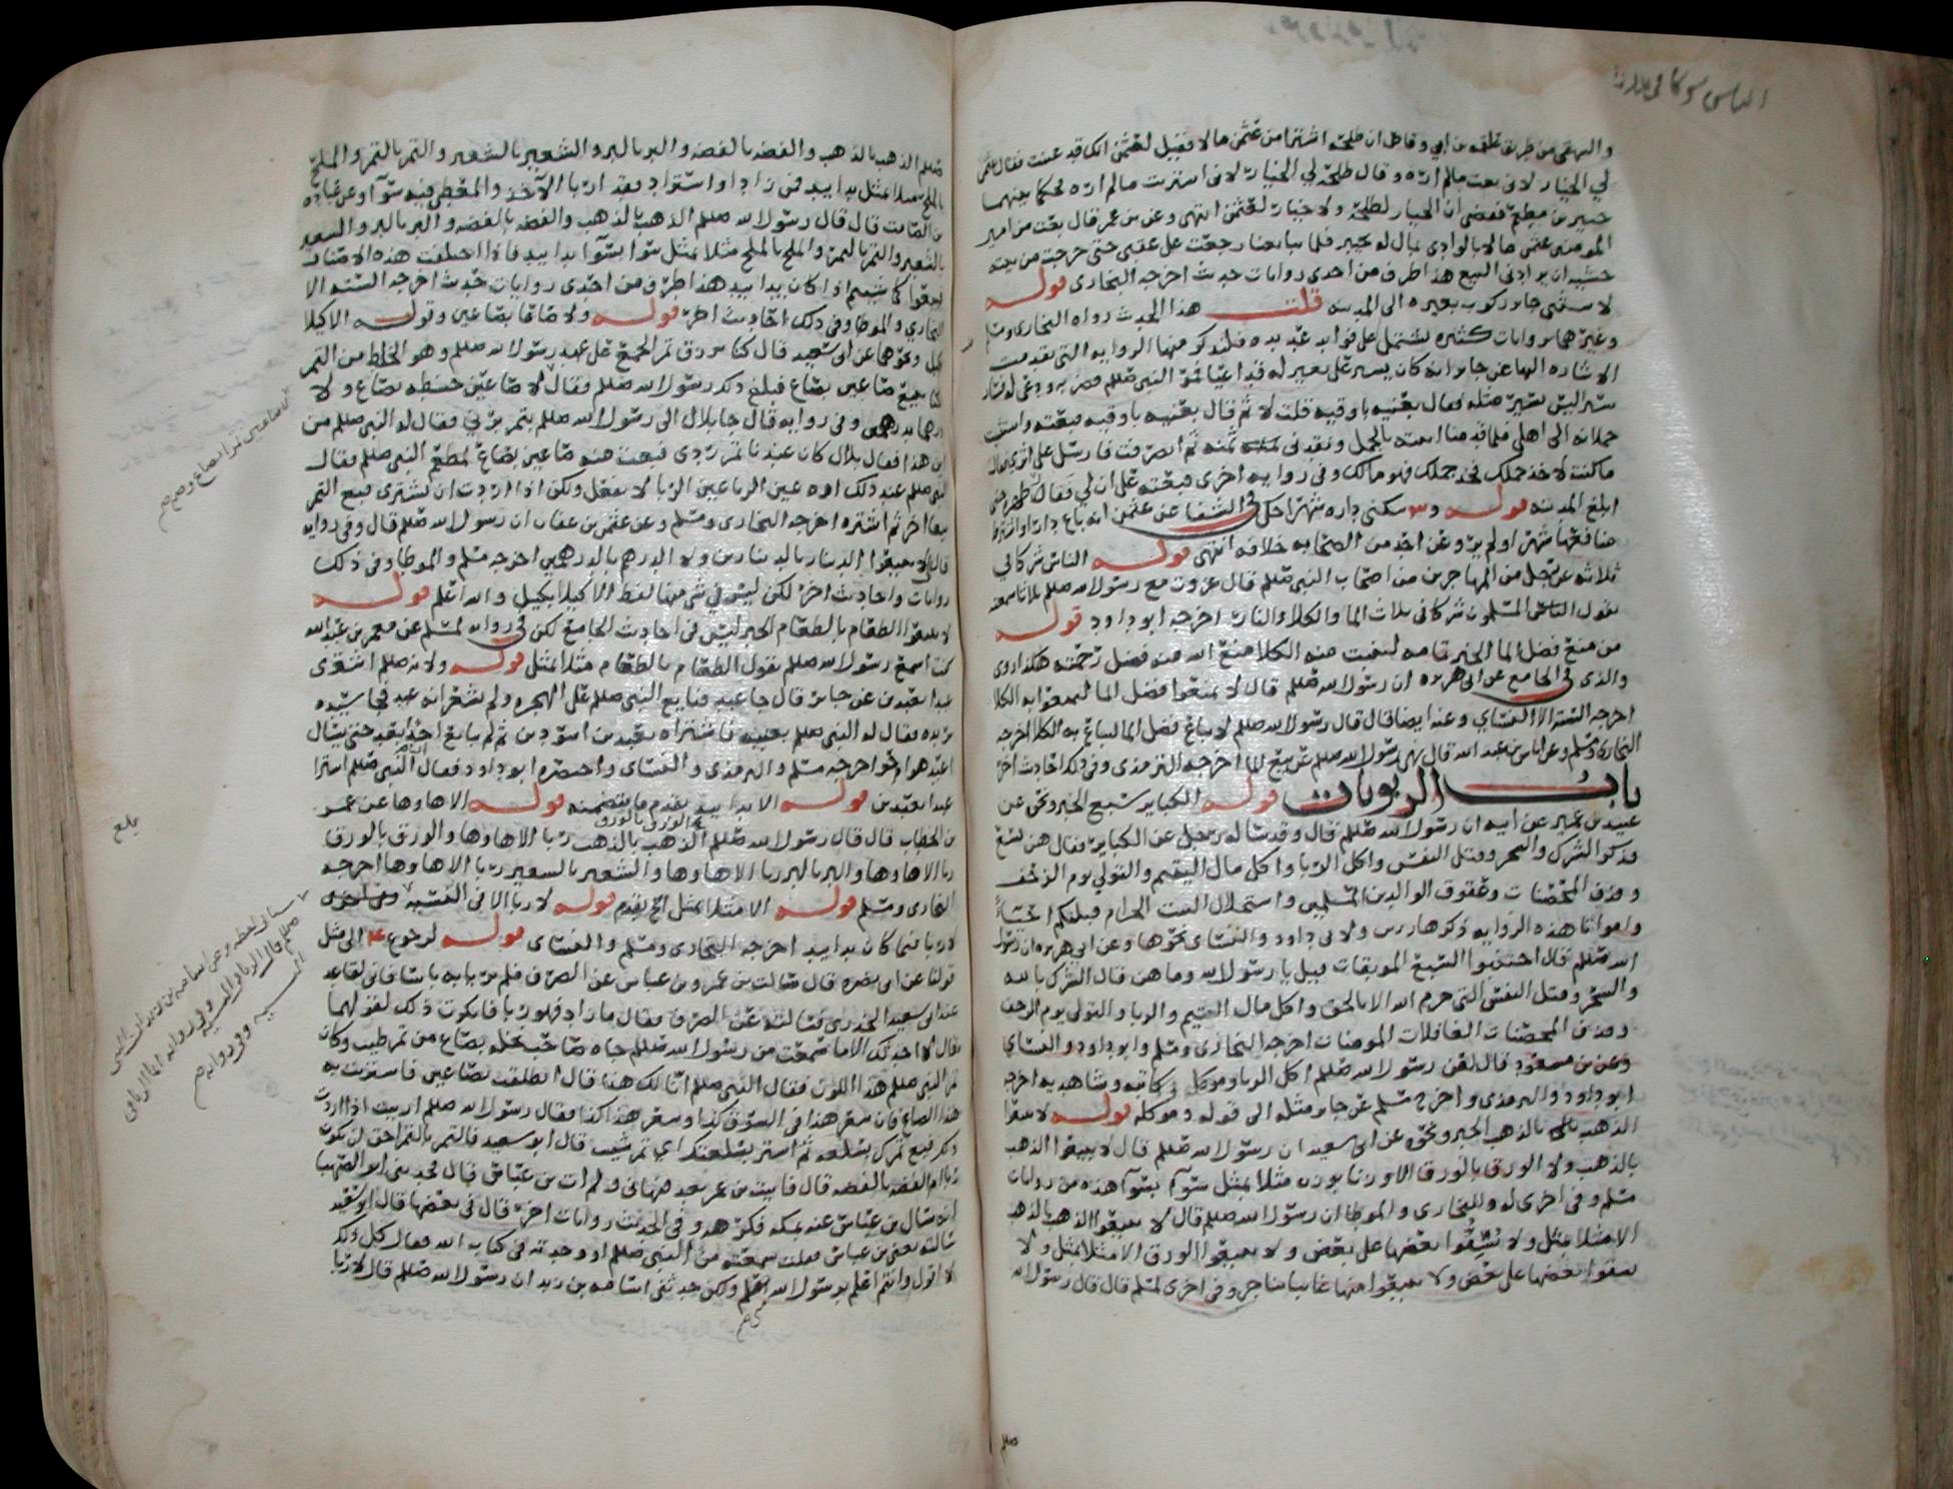 الناس شركا في ثلاث
والبيهقي من طريق علقمه بن ابي وقاص ان طلحه اشترا من عثمن مالا فقيل لعثمن انك قد غبنت فقال عثمن
لي الخيار لاني بعت مالم اره وقال طلحه لي الخيار لاني اشتريت مالم اره فحكما بينهما
جبير بن مطعم فقضى ان الخيار لطلحه ولا خيار لعثمن انتهى وعن بن عمر قال بعت من امير
المومنين عثمن مالا بالوادي بمال له بخيبر فلما تبايعنا رجعت على عقبي حتى خرجت من بيته
خشيه ان يرادني البيع هذا طرف من احدى روايات حديث اخرجه البخاري قوله
لاستثنى جابر ركوب بعيره الى المدينه قلت هذا الحديث رواه البخاري ومسلم
وغيرهما بروايات كثيره تشتمل على فوايد عديده فلنذكر منها الروايه التي تقدمت
الاشاره اليها عن جابر انه كان يسير على بعير له قد اعيا فمر النبي صلعم فضربه ودعى له فسار
سيرا ليس يسير مثله فقال بعنيه باوقيه قلت لا ثم قال بعنيه باوقيه فبعته واستثنيت
حملانه الى اهلي فلما قدمنا اتيته بالجمل ونقدني ثمنه ثم انصرفت فارسل على اثري فقال
ما كنت لاخذ جملك فخذ جملك فهو مالك وفي روايه اخرى فبعته على ان لي فقار ظهره حتى
ابلغ المدينه قوله و سكنى داره شهرا حكى في الشفا عن عثمن انه باع دارا واشترط
منافعها شهرا ولم يرو عن احد من الصحابه خلافه انتهى قوله الناس شركا في
ثلاثه عن رجل من المهاجرين من اصحاب النبي صلعم قال غزوت مع رسول الله صلعم ثلاثا اسمعه
يقول الناس المسلمون شركا في ثلاث الما والكلا والنار اخرجه ابو داود قوله
من منع فضل الما الخبر تمامه لينبت منه الكلا منع الله منه فضل رحمته هكذا روي
والذي في الجامع عن ابي هريره ان رسول الله صلعم قال لا تمنعوا فضل الما لتمنعوا به الكلا
اخرجه السته الا النساي وعنه ايضا قال قال رسول الله صلعم لا يباع فضل الما ليباع به الكلا اخرجه
البخاري ومسلم وعن اياس بن عبد الله قال نهى رسول الله صلعم عن بيع الما اخرجه الترمذي وفي ذلك احاديث اخر
باب الربويات قوله الكباير سبع الخبر ونحوه عن
عبيد بن عمير عن ابيه ان رسول الله صلعم قال وقد ساله رجل عن الكباير فقال هن تسع
فذكر الشرك والسحر وقتل النفس واكل الربا واكل مال اليتيم والتولي يوم الزحف
وقذف المحصنات وعقوق الوالدين المسلمين واستحلال البيت الحرام قبلتكم احياء
وامواتا هذه الروايه ذكرها رزين ولابي داود والنساي نحوها وعن ابي هريره ان رسول
الله صلعم قال اجتنبوا السبع الموبقات قيل يا رسول الله وما هن قال الشرك بالله
والسحر وقتل النفس التي حرم الله الا بالحق واكل مال اليتيم والربا والتولي يوم الزحف
وقذف المحصنات الغافلات المومنات اخرجه البخاري ومسلم وابو داود والنساي
وعن بن مسعود قال لعن رسول الله صلعم اكل الربا وموكله وكاتبه وشاهديه اخرجه
ابو داود والترمذي واخرج مسلم عن جابر مثله الى قوله وموكله قوله لا تبيعوا
الذهب بالذهب الخبر ونحوه عن ابي سعيد ان رسول الله صلعم قال لا تبيعوا الذهب
بالذهب ولا الورق بالورق الا وزنا بوزن مثلا بمثل سوآ بسوآ هذه من روايات
مسلم وفي اخرى له وللبخاري والموطا ان رسول الله صلعم قال لا تبيعوا الذهب بالذهب
الا مثلا بمثل ولا تشفوا بعضها على بعض ولا تبيعوا الورق الا مثلا بمثل ولا
تشفوا بعضها على بعض ولا تبيعوا منها غايبا بناجز وفي اخرى لمسلم قال قال رسول الله
صلعم
صلعم الذهب بالذهب والفضه بالفضه والبر بالبر والشعير بالشعير والتمر بالتمر والملح
بالملح مثلا بمثل يدا بيد فمن زاد او استزاد فقد اربا الآخذ والمعطي فيه سوآ وعن عباده
بن الصامت قال قال رسول الله صلعم الذهب بالذهب والفضه بالفضه والبر بالبر والشعير
بالشعير والتمر بالتمر والملح بالملح مثلا بمثل سوآ بسوآ يدا بيد فاذا اختلفت هذه الاصناف
فبيعوا كما شيتم اذا كان يدا بيد هذا طرف من احدى روايات حديث اخرجه السته الا
البخاري والموطا وفي ذلك احاديث اخر قوله ولا صاعا بصاعين وقوله الا كيلا
بكيل ونحوهما عن ابي سعيد قال كنا نرزق تمر الجمع على عهد رسول الله صلعم وهو الخلط من التمر
كنا نبيع صاعين بصاع فبلغ ذلك رسول الله صلعم فقال لا صاعين حنطه بصاع ولا
درهما بدرهمين وفي روايه قال جا بلال الى رسول الله صلعم بتمر برني وقال له النبي صلعم من
اين هذا فقال بلال كان عندنا تمر ردي فبعت منه صاعين بصاع لمطعم النبي صلعم فقال
النبي صلعم عند ذلك اوه عين الربا عين الربا لا تفعل ولكن اذا اردت ان تشتري فبع التمر
بيعا اخر ثم اشتره اخرجه البخاري ومسلم وعن عثمن بن عفان ان رسول الله صلعم قال وفي روايه
قال لا تبيعوا الدينار بالدينارين ولا الدرهم بالدرهمين اخرجه مسلم والموطا وفي ذلك
روايات واحاديث اخر لكن ليس في شي منها لفظ الا كيلا بكيل والله اعلم قوله
لا تبيعوا الطعام بالطعام الخبر ليس في احاديث الجامع لكن في روايه لمسلم عن معمر بن عبد الله
كنت اسمع رسول الله صلعم يقول الطعام بالطعام مثلا بمثل قوله ولانه صلعم اشترى
عبدا بعبدين عن جابر قال جا عبد فبايع النبي صلعم على الهجره ولم يشعر انه عبد فجا سيده
يريده فقال له النبي صلعم بعنيه فاشتراه بعبدين اسودين ثم لم يبايع احدا بعد حتى يسال
اعبد هو ام حر اخرجه مسلم والترمذي والنساي واختصره ابو داود فقال ان النبي صلعم اشترا
عبدا بعبدين قوله الا يدا بيد تقدم ما يتضمنه قوله الا ها وها عن عمر
بن الخطاب قال قال رسول الله صلعم الذهب بالذهب ربا الا ها وها والورق بالورق
ربا الا ها وها والبر بالبر ربا الا ها وها والشعير بالشعير ربا الا ها وها اخرجه
البخاري ومسلم قوله الا مثلا بمثل الخ تقدم قوله لا ربا الا في النسيه
لا ربا فيما كان يدا بيد اخرجه البخاري ومسلم والنساي قوله لرجوع الى مثل
قولنا عن ابي نضره قال سالت بن عمر وبن عباس عن الصرف فلم يريا به باسا فاني لقاعد
عند ابي سعيد الخدري فسالته عن الصرف فقال ما زاد فهو ربا فانكرت ذلك لقولهما
فقال لا احدثك الا ما سمعت من رسول الله صلعم جاه صاحب نخله بصاع من تمر طيب وكان
تمر النبي صلعم هذا اللون فقال النبي صلعم انى لك هذا قال انطلقت بصاعين فاشتريت به
هذا الصاع فان سعر هذا في السوق كذا وسعر هذا كذا فقال رسول الله صلعم اربيت اذا اردت
ذلك فبع تمرك بسلعه ثم اشتر بسلعتك اي تمر شيت قال ابو سعيد فالتمر بالتمر احق ان يكون
ربا ام الفضه بالفضه قال فاتيت بن عمر بعد فنهاني ولم ات بن عباس قال فحدثني ابو الصهبا
انه سال بن عباس عنه بمكه فكرهه وفي الحديث روايات اخر قال في بعضها قال ابو سعيد
سالته يعني بن عباس فقلت سمعته من النبي صلعم او وجدته في كتاب الله فقال كل ذلك
لا اقول وانتم اعلم برسول الله صلعم ولكن حدثني اسامه بن زيد ان رسول الله صلعم قال لا ربا
بلغ